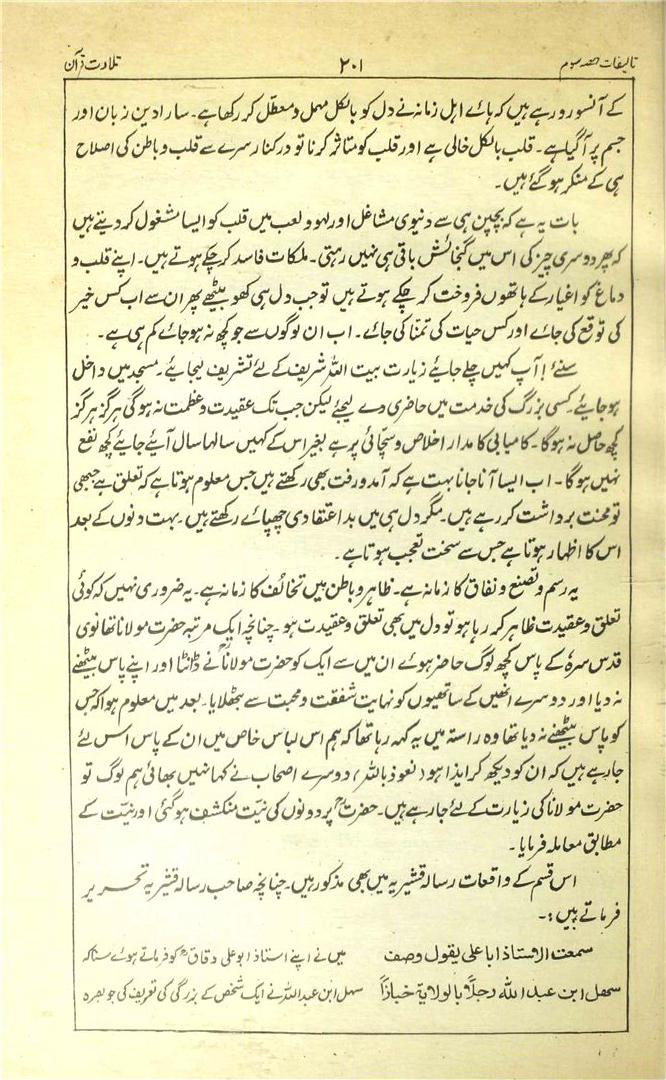 تالیفات حصہ سوم ۲۰۱ تلاوت قرآن
کے آنسو رو رہے ہیں کہ ہائے اہل زمانہ نے دل کو بالکل مہمل و معطل کر رکھا ہے۔ سارا دین زبان اور
جسم پر آگیا ہے۔ قلب بالکل خالی ہے اور قلب کو متاثر کرنا تو درکنار سرے سے قلب و باطن کی اصلاح
ہی کے منکر ہوگئے ہیں۔
بات یہ ہے کہ بچپن ہی سے دنیوی مشاغل اور لہو و لعب میں قلب کو ایسا مشغول کردیتے ہیں
کہ پھر دوسری چیز کی اس میں گنجائش باقی ہی نہیں رہتی۔ ملکات فاسد کرچکے ہوتے ہیں۔ اپنے قلب و
دماغ کو اغیار کے ہاتھوں فروخت کرچکے ہوتے ہیں تو جب دل ہی کھو بیٹھے پھر ان سے اب کس خیر
کی توقع کی جائے اور کس حیات کی تمنا کی جائے۔ اب ان لوگوں سے جو کچھ نہ ہوجائے کم ہی ہے۔
سنئے! آپ کہیں چلے جائیے زیارت بیت اللہ شریف کے لئے تشریف لیجائیے۔ مسجد میں داخل
ہوجائیے۔ کسی بزرگ کی خدمت میں حاضری دے لیجئے لیکن جب تک عقیدت و عظمت نہ ہوگی ہرگز ہرگز
کچھ حاصل نہ ہوگا۔ کامیابی کا مدار اخلاص و سچائی پر ہے بغیر اس کے کہیں سالہا سال آیئے جایئے کچھ نفع
نہیں ہوگا۔ اب ایسا آنا جانا بہت ہے کہ آمد ورفت بھی رکھتے ہیں جس معلوم ہوتا ہے کہ تعلق ہے جبھی
تو محنت برداشت کر رہے ہیں۔ مگر دل ہی میں بد اعتقادی چھپائے رکھتے ہیں۔ بہت دنوں کے بعد
اس کا اظہار ہوتا ہے جس سے سخت تعجب ہوتا ہے۔
یہ رسم و تصنع و نفاق کا زمانہ ہے۔ ظاہر و باطن میں تخالف کا زمانہ ہے۔ یہ ضروری نہیں کہ کوئی
تعلق و عقیدت ظاہر کر رہا ہو تو دل میں بھی تعلق و عقیدت ہو۔ چنانچہ ایک مرتبہ حضرت مولانا تھانوی
قدس سرہٗ کے پاس کچھ لوگ حاضر ہوئے ان میں سے ایک کو حضرت مولاناؒ نے ڈانٹا اور اپنے پاس بیٹھنے
نہ دیا اور دوسرے انھیں کے ساتھیوں کو نہایت شفقت و محبت سے بٹھلایا۔ بعد میں معلوم ہوا کہ جس
کو پاس بیٹھنے نہ دیا تھا وہ راستہ میں یہ کہہ رہا تھا کہ ہم اس لباس خاص میں ان کے پاس اس لئے
جا رہے ہیں کہ ان کو دیکھ کر ایذا ہو (نعوذ باللہ) دوسرے اصحاب نے کہا نہیں بھائی ہم لوگ تو
حضرت مولانا کی زیارت کے لئے جارہے ہیں۔ حضرتؒ پر دونوں کی نیت منکشف ہوگئی اور نیت کے
مطابق معاملہ فرمایا۔
اس قسم کے واقعات رسالہ قشیریہ میں بھی مذکور ہیں۔ چنانچہ صاحب رسالہ قشیریہ تحریر
فرماتے ہیں:۔
سمعت الاستاذ ابا علی یقول وصف میں نے اپنے استاذ ابو علی دقاقؒ کو فرماتے ہوئے سنا کہ
سھل ابن عبد اللہ رجلاً بالولایة خبازاً سہل ابن عبد اللہ نے ایک شخص کے بزرگی کی تعریف کی جو بصرہ